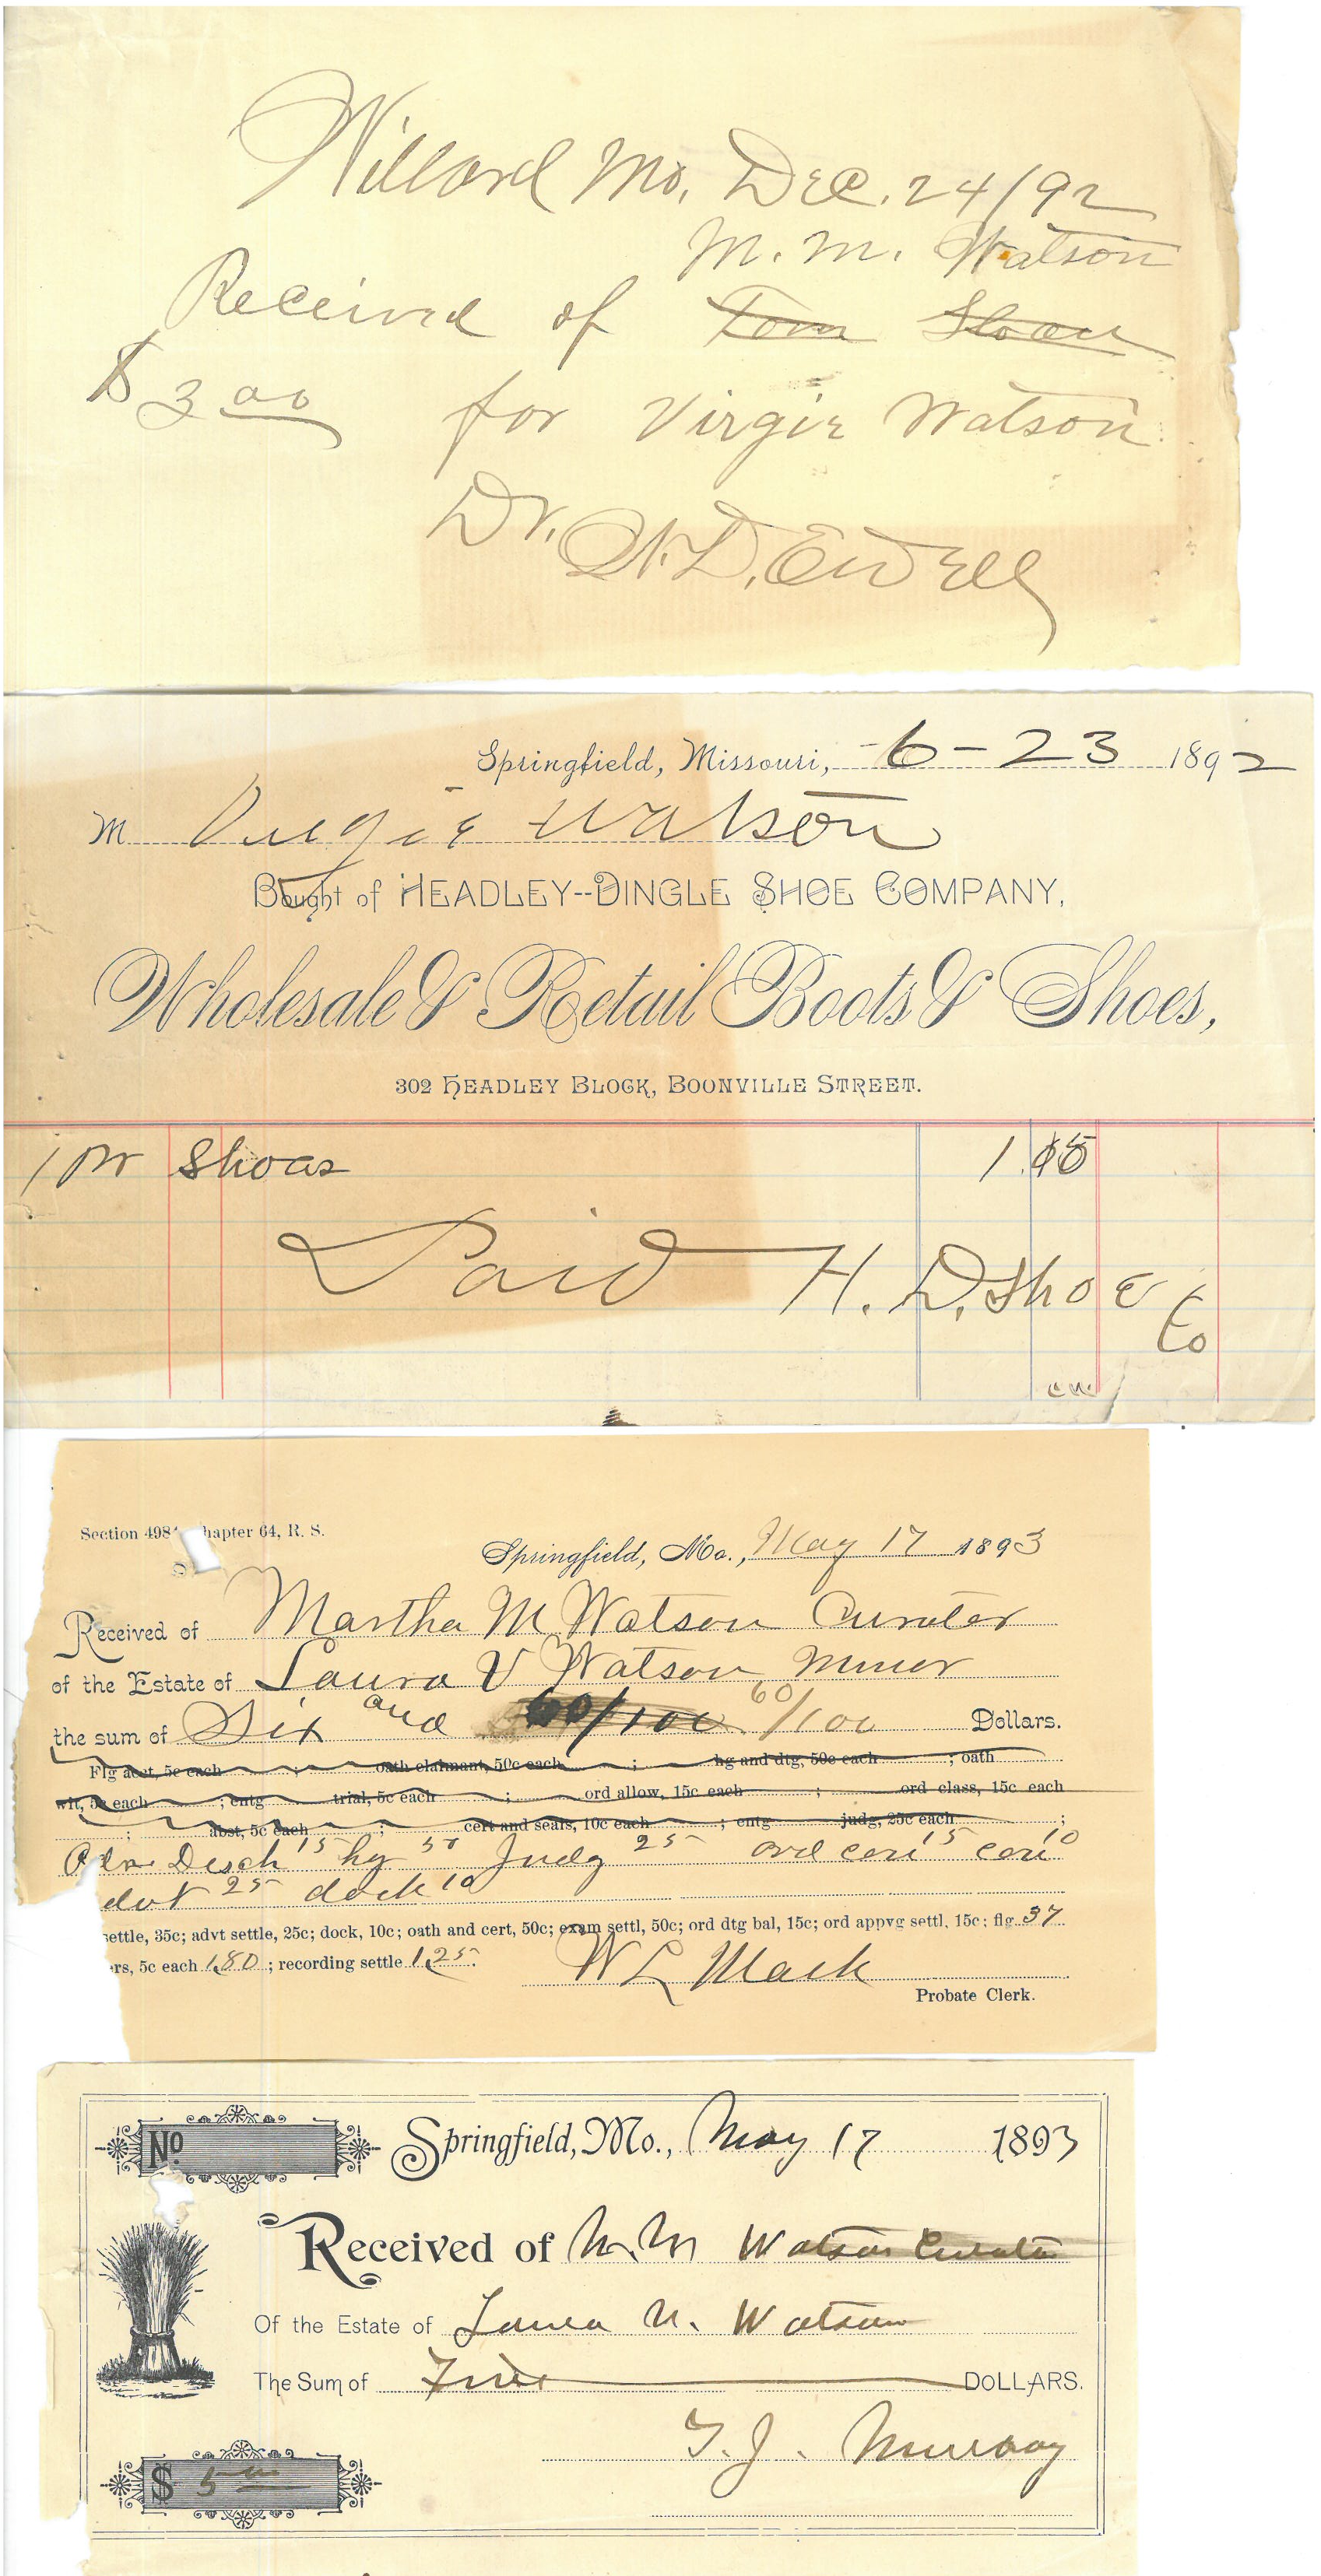 Willard Mo. Dec. 24/92
M. M. Watson
Received of Tom Sloan
$3 00 for Virgie Watson
Dr. W. D. Ewell
Springfield, Missouri, -6-23 1892
M Virgie Watson
Bought of HEADLEY--DINGLE SHOE COMPANY,
Wholesale & Retail Boots & Shoes,
302 HEADLEY BLOCK, BOONVILLE STREET.
1 pr Shoes 1.
Paid H. D. Shoe
Co
Section 498 hapter 64, R. S.
Springfield, Mo., May 17 1893
Received of Martha M Watson Curator
of the Estate of Laura V Watson minor
the sum of Six and 60/100 60/100 Dollars.
Flg acct, 5c each ; oath claimant, 50c each ; hg and dtg, 50c each ; oath
wit, 5c each ; entg trial, 5c each ; ord allow, 15c each ; ord class, 15c each
; abst, 5c each ; cert and seals, 10c each ; entg judg, 25c each ;
Disch 15 hg 50 Judg 25 ord 15 10
25 dock 10
settle, 35c; advt settle, 25c; dock, 10c; oath and cert, 50c; exam settl, 50c; ord dtg bal, 15c; ord appvg settl, 15c; flg 37
rs, 5c each 1.80; recording settle 1.25.
W L Mack
Probate Clerk.
No
Springfield, Mo., May 17 1893
Received of M. M Watson Curator
Of the Estate of Laura V. Watson
The Sum of Five DOLLARS.
T. J. Murray
$ 5 00